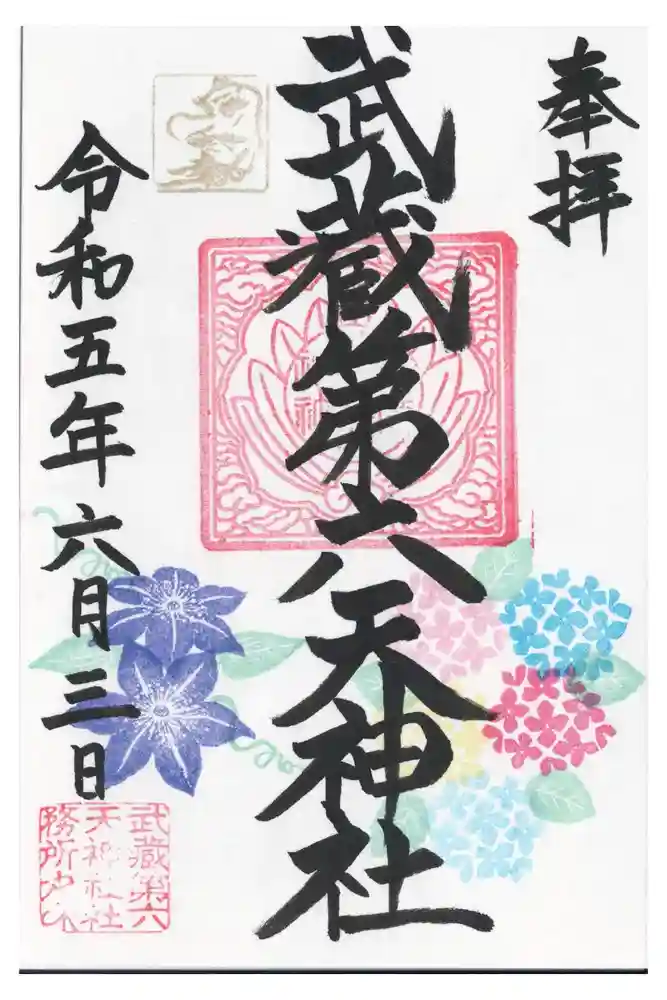 奉拝
武蔵第六天神社
令和五年六月三日
武蔵第六
天神社社
務所之印